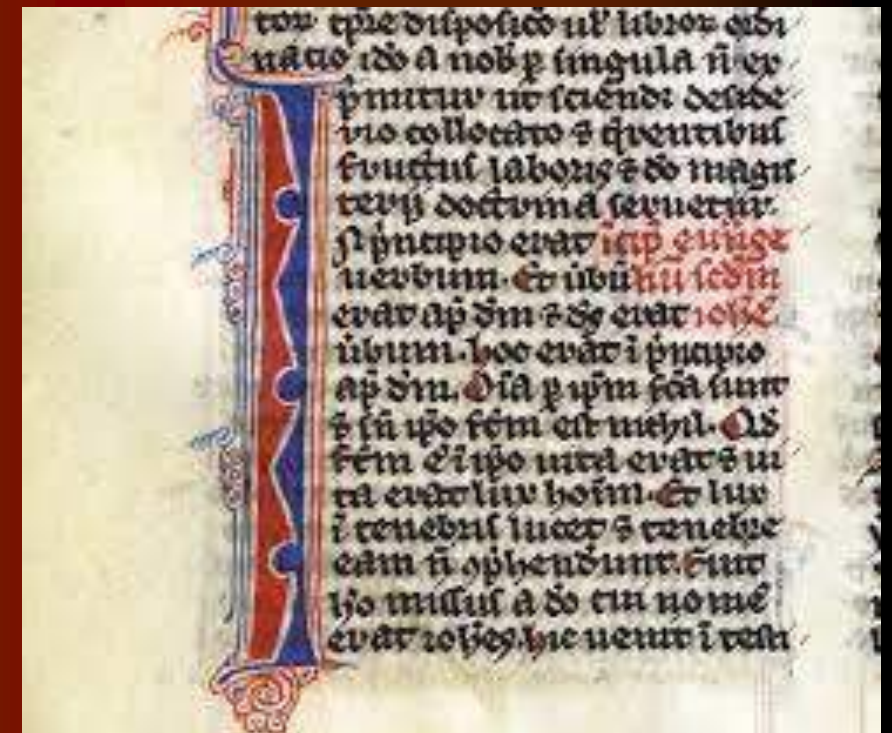 tor tpre disposico ul libror ordi
natio ido a nob p singula n ex
pmitur ut sciendi deside
rio collocato & qrentibus
fructus laboris & do magis
terij doctrina seruetur.
N pncipio erat icip euuge
uerbum. Et ubu hu scdm
erat ap dm & ds erat iohe
ubum. hoc erat i pncipio
ap dm. Oia p ipm fca sunt
& sn ipo fcm est nichil. QS
fcm e i ipo uita erat & ui
ta erat lux hoim. Et lux
i tenebris lucet & tenebre
eam n ophendunt. Fuit
ho missus a do cui nome
erat iohes. hic uenit i testi